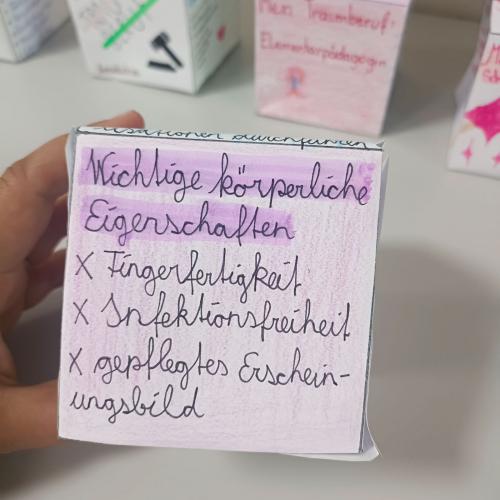 Mein Traumberuf:
Elementarpädagogin
durchführen
Wichtige körperliche
Eigenschaften
X Fingerfertigkeit
X Infektionsfreiheit
X gepflegtes Erschein-
ungsbild